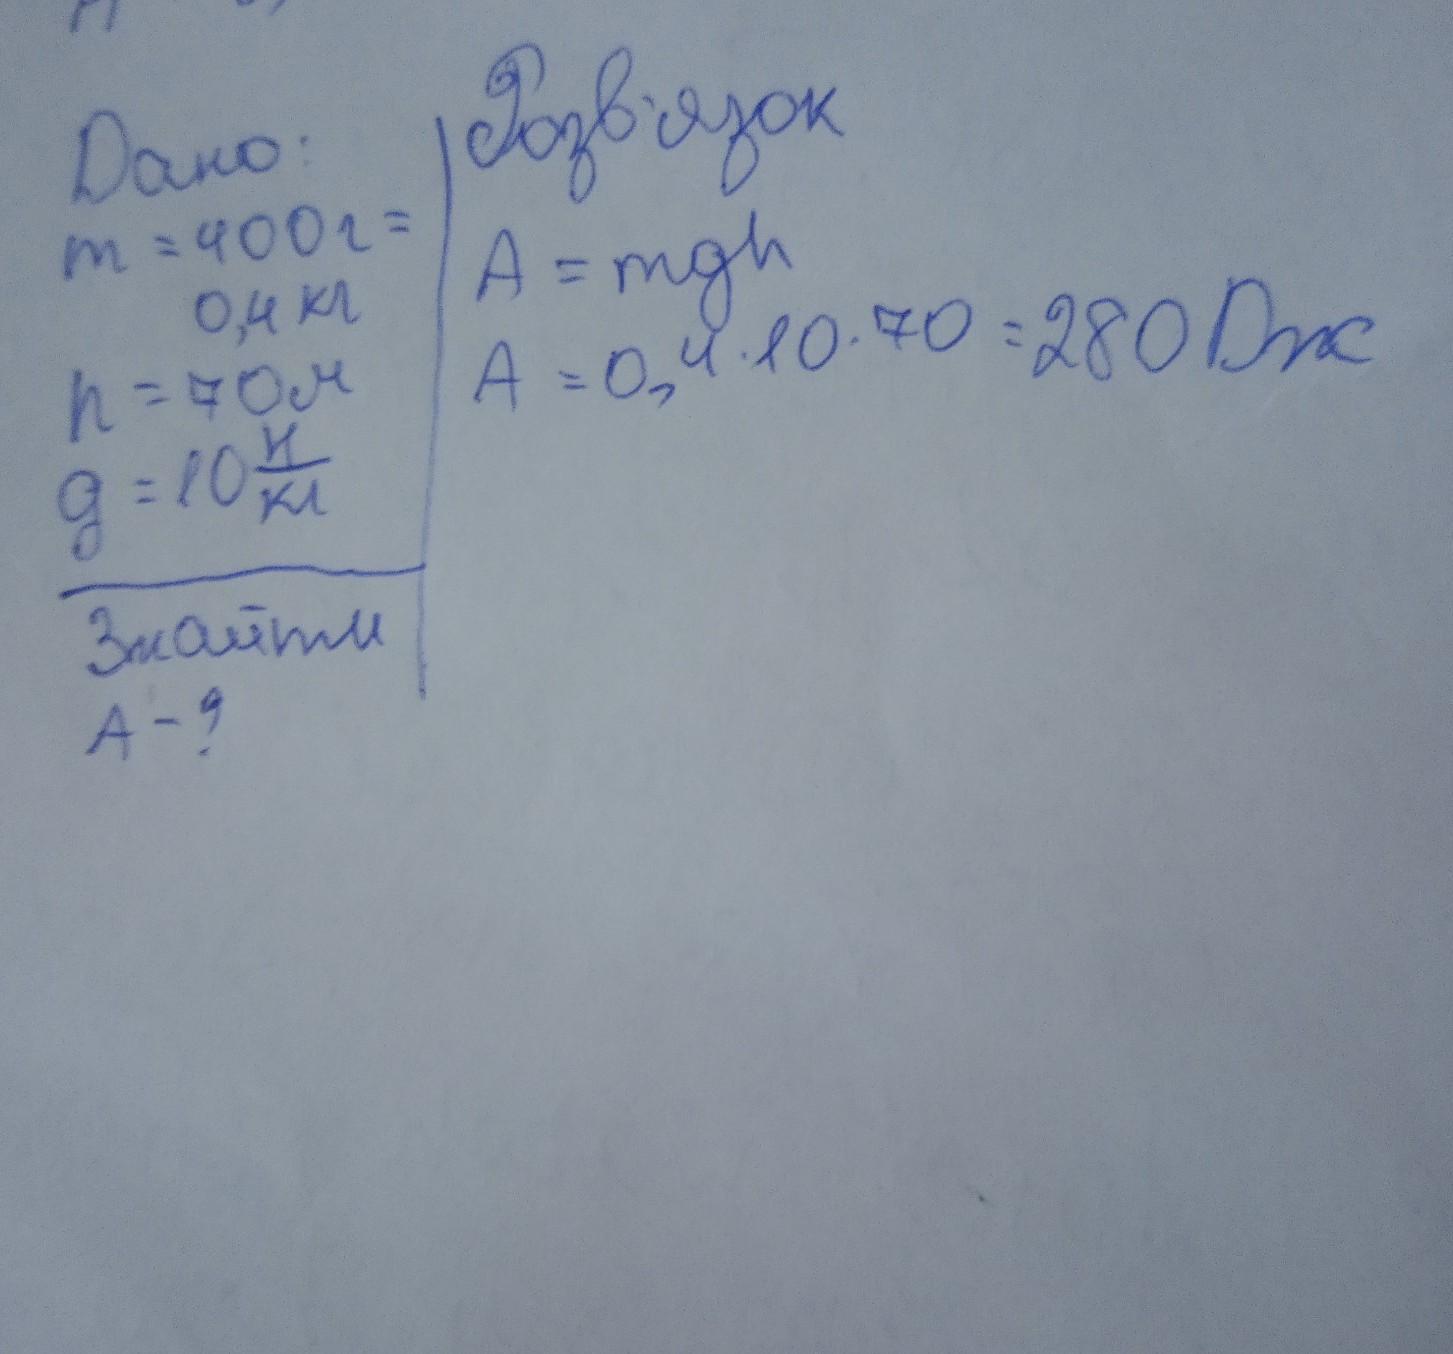 Дано:
m = 400г =
0,4 кг
h = 70м
g = 10 Н/кг
Знайти
А - ?
Розв'язок
A = mgh
A = 0,4 · 10 · 70 = 280 Дж